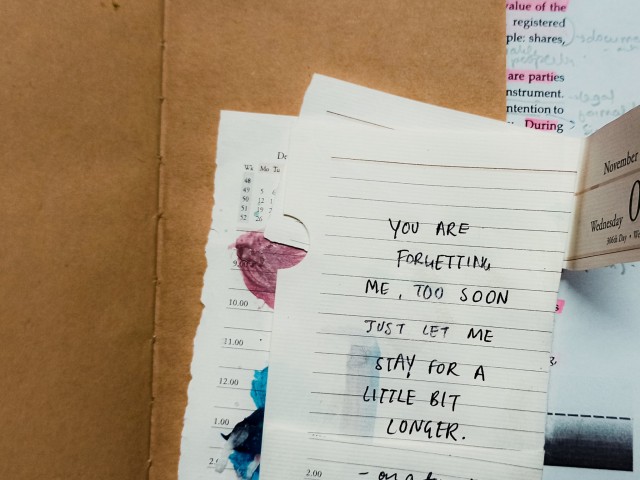 value of the
registered
ple: shares,
are parties
nstrument.
ntention to
During
November
Wednesday
306th Day
De
Wk Mo Tu
48
49 5 6
50 12 1
51 19 2
52 26
10.00
11.00
12.00
1.00
2.00
YOU ARE
FORGETTING
ME, TOO SOON
JUST LET ME
STAY FOR A
LITTLE BIT
LONGER.